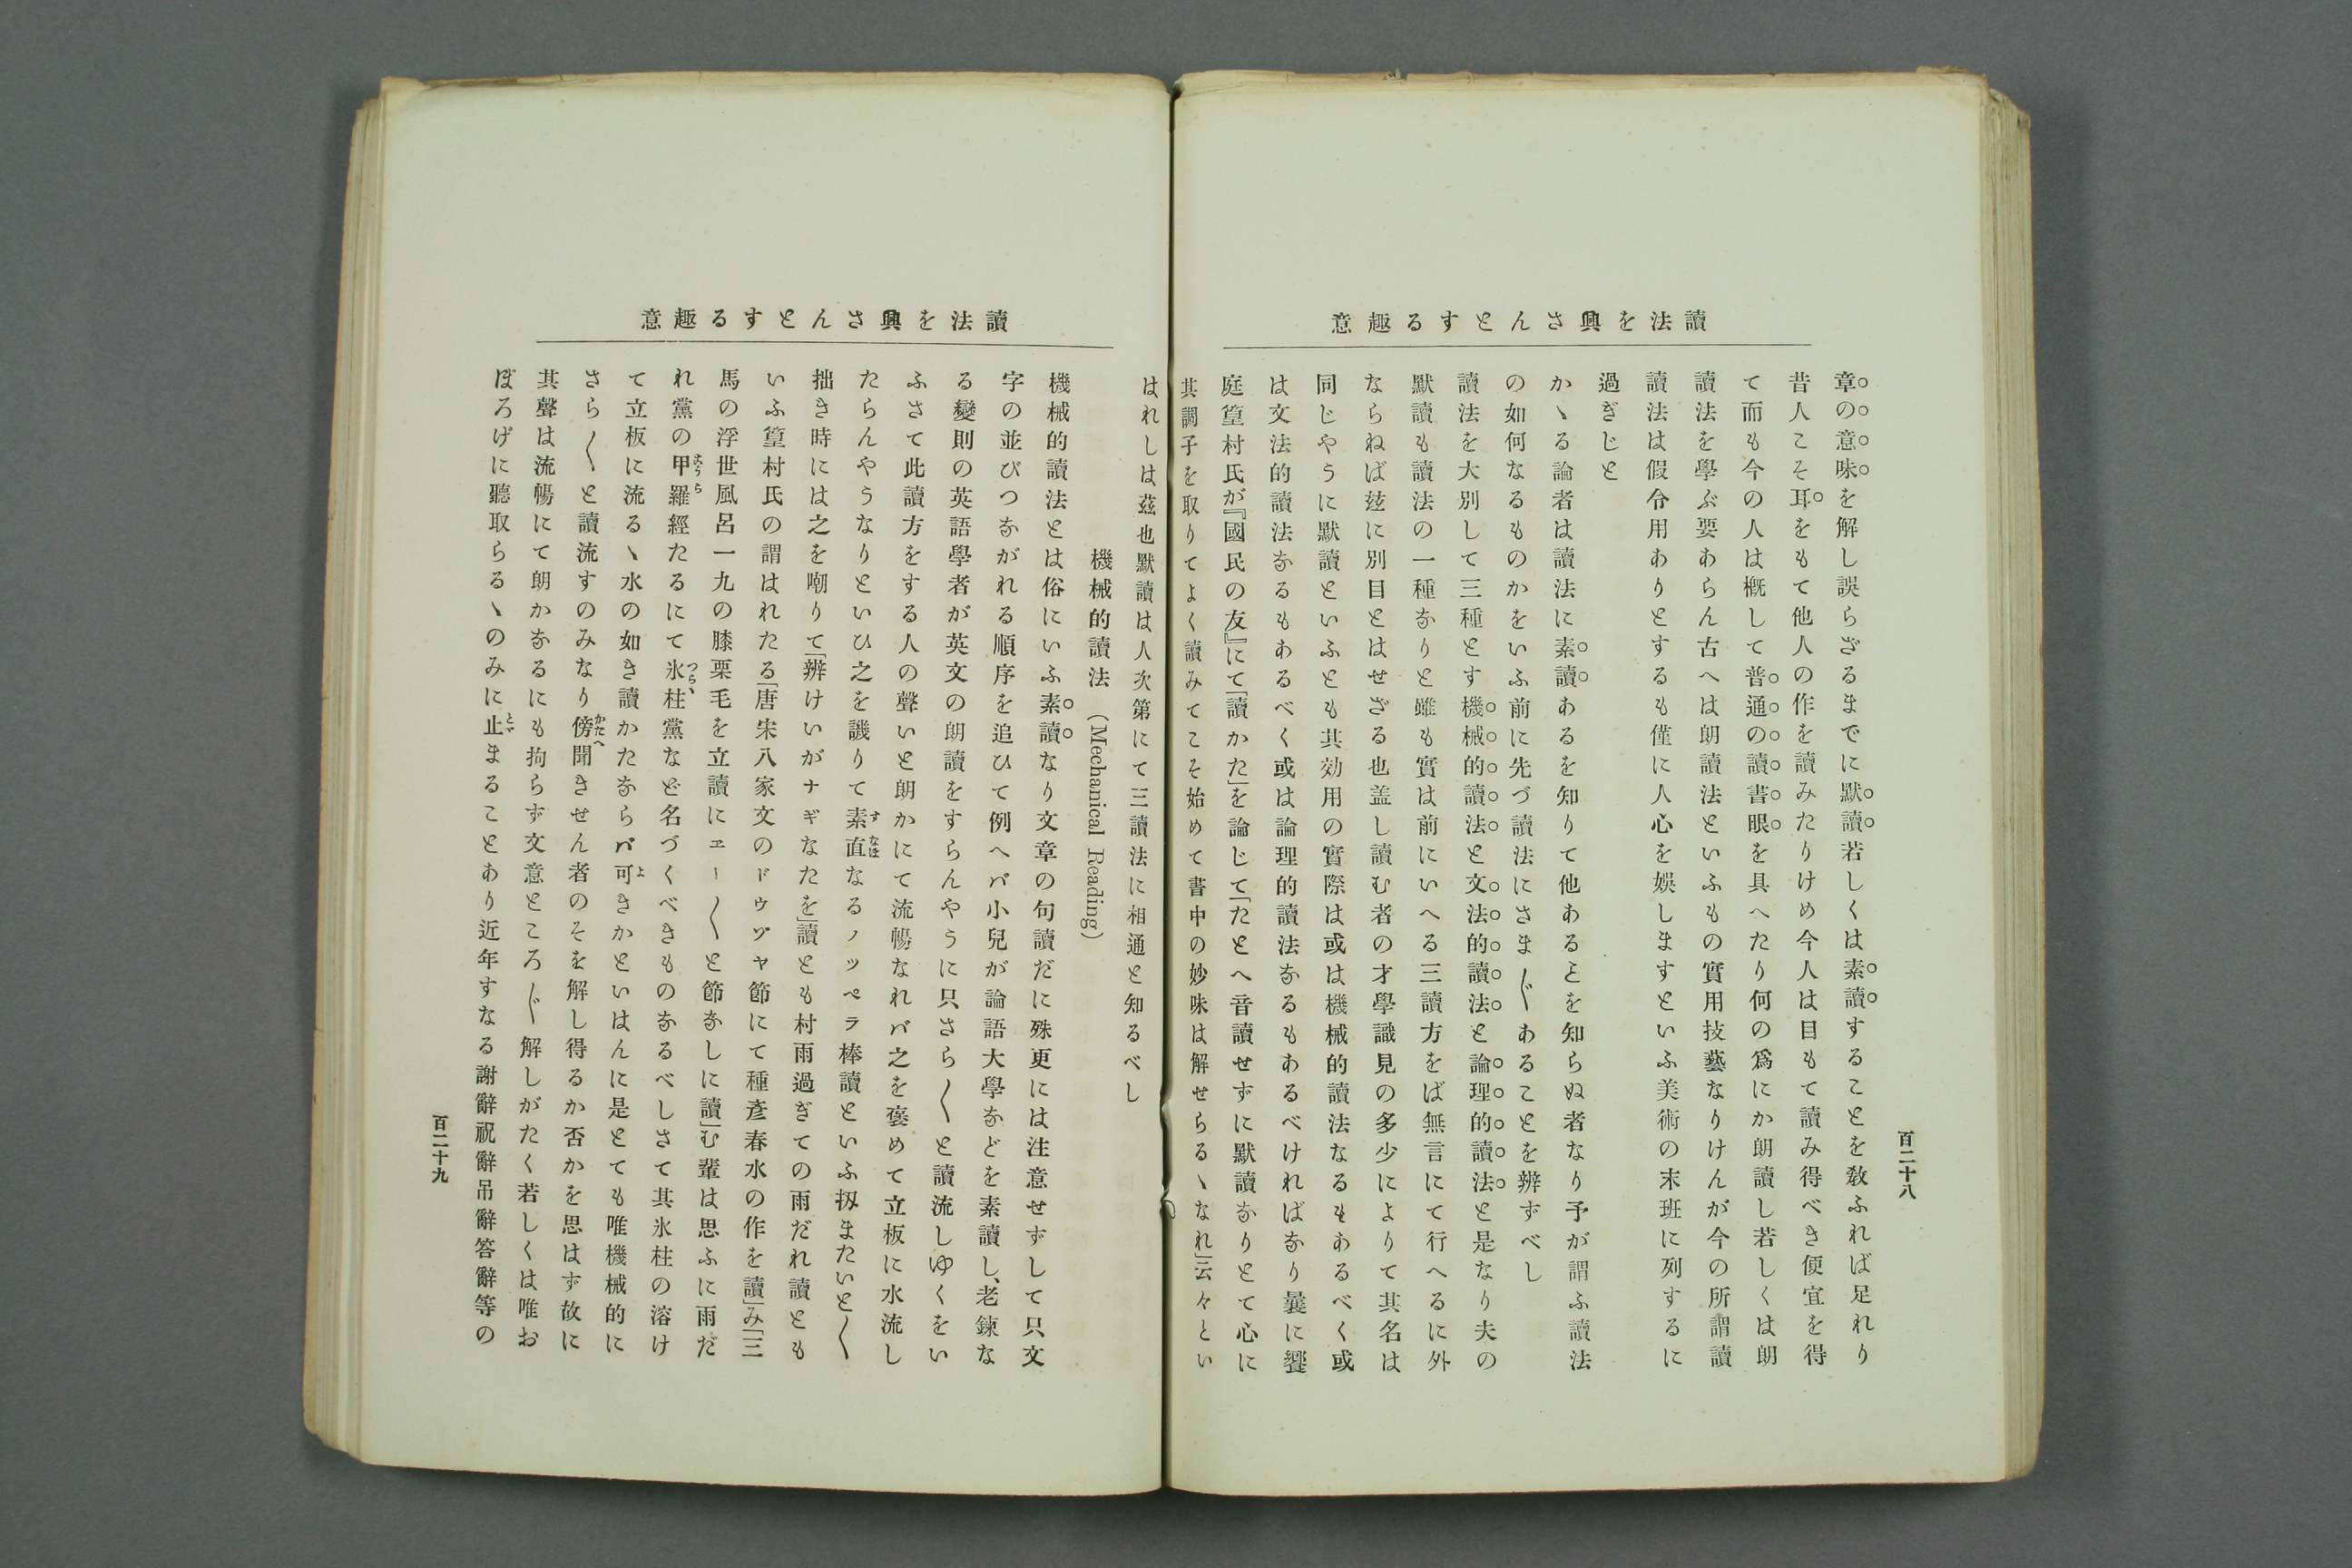 讀法を興さんとする趣意
章の意味を解し誤らざるまでに默讀若しくは素讀することを敎ふれば足れり
昔人こそ耳をもて他人の作を讀みたりけめ今人は目もて讀み得べき便宜を得
て而も今の人は槪して普通の讀書眼を具へたり何の爲にか朗讀し若しくは朗
讀法を學ぶ要あらん古へは朗讀法といふもの實用技藝なりけんが今の所謂讀
讀法は假令用ありとするも僅に人心を娛しますといふ美術の末班に列するに
過ぎじと
かヽる論者は讀法に素讀あるを知りて他あるヿを知らぬ者なり予が謂ふ讀法
の如何なるものかをいふ前に先づ讀法にさま〴〵あることを辨ずべし
讀法を大別して三種とす機械的讀法と文法的讀法と論理的讀法と是なり夫の
默讀も讀法の一種なりと雖も實は前にいへる三讀方をば無言にて行へるに外
ならねば玆に別目とはせざる也盖し讀む者の才學識見の多少によりて其名は
同じやうに默讀といふとも其効用の實際は或は機械的讀法なるもあるべく或
は文法的讀法なるもあるべく或は論理的讀法なるもあるべければなり曩に饗
庭篁村氏が『國民の友』にて「讀かた」を論じて「たとへ音讀せずに默讀なりとて心に
其調子を取りてよく讀みてこそ始めて書中の妙味は解せらるヽなれ」云々とい
百二十八
讀法を興さんとする趣意
はれしは玆也默讀は人次第にて三讀法に相通と知るべし
機械的讀法 (Mechanical Reading)
機械的讀法とは俗にいふ素讀なり文章の句讀だに殊更には注意せずして只文
字の並びつながれる順序を追ひて例へバ小兒が論語大學などを素讀し、老鍊な
る變則の英語學者が英文の朗讀をすらんやうに只さら〳〵と讀流しゆくをい
ふさて此讀方をする人の聲いと朗かにて流暢なれバ之を褒めて立板に水流し
たらんやうなりといひ之を譏りて素直なるノッペラ棒讀といふ扨またいと〳〵
拙き時には之を嘲りて「辨けいがナギなたを」讀とも村雨過ぎての雨だれ讀とも
いふ篁村氏の謂はれたる「唐宋八家文のドウヅヤ節にて種彥春水の作を讀」み「三
馬の浮世風呂一九の膝栗毛を立讀にエー〳〵と節なしに讀」む輩は思ふに雨だ
れ黨の甲羅經たるにて氷柱黨など名づくべきものなるべしさて其氷柱の溶け
て立板に流るヽ水の如き讀かたならバ可きかといはんに是とても唯機械的に
さら〳〵と讀流すのみなり傍聞きせん者のそを解し得るか否かを思はず故に
其聲は流暢にて朗かなるにも拘らず文意ところ〴〵解しがたく若しくは唯お
ぼろげに聽取らるヽのみに止まることあり近年すなる謝辭祝辭吊辭答辭等の
百二十九